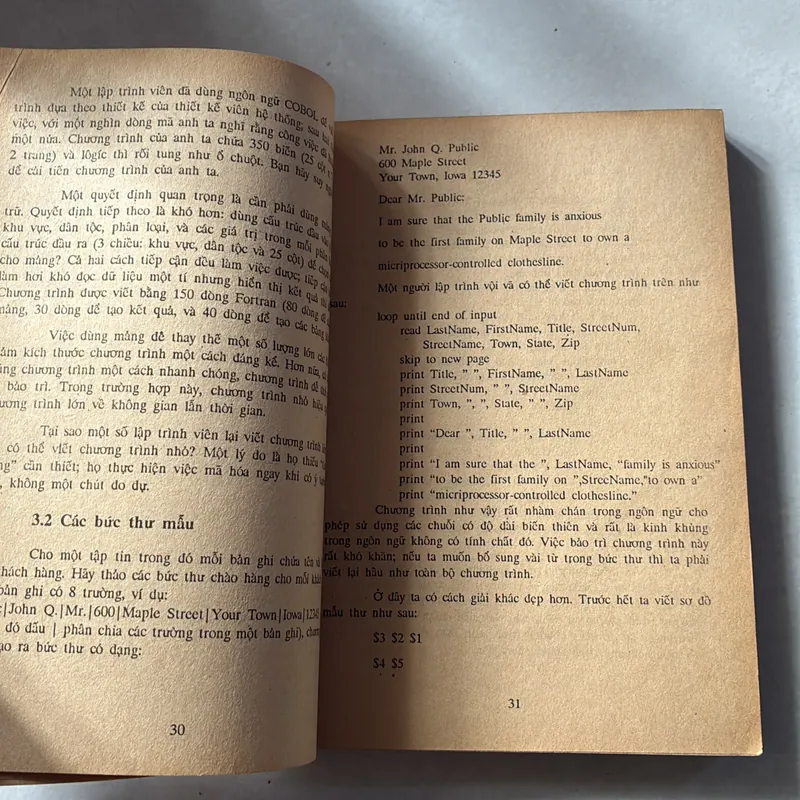 Một lập trình viên đã dùng ngôn ngữ COBOL để
trình dựa theo thiết kế của thiết kế viên hệ thống; sau
việc, với một nghìn dòng mã anh ta nghĩ rằng công việc đã
một nửa. Chương trình của anh ta chứa 350 biến (25 cột x
2 trang) và lôgíc thì rối tung như ổ chuột. Bạn hãy suy
để cải tiến chương trình của anh ta.
Một quyết định quan trọng là cần phải dùng mảng
trữ. Quyết định tiếp theo là khó hơn: dùng cấu trúc đầu vào
khu vực, dân tộc, phân loại, và các giá trị trong mỗi phân
cấu trúc đầu ra (3 chiều: khu vực, dân tộc và 25 cột) để
cho mảng? Cả hai cách tiếp cận đều làm việc được; tiếp cận
làm hơi khó đọc dữ liệu một tí nhưng hiển thị kết quả thì
Chương trình được viết bằng 150 dòng Fortran (80 dòng để
mảng, 30 dòng để tạo kết quả, và 40 dòng để tạo các bảng
Việc dùng mảng để thay thế một số lượng lớn các
ảm kích thước chương trình một cách đáng kể. Hơn nữa,
ng chương trình một cách nhanh chóng, chương trình dễ
bảo trì. Trong trường hợp này, chương trình nhỏ hiệu
ương trình lớn về không gian lẫn thời gian.
Tại sao một số lập trình viên lại viết chương trình
có thể viết chương trình nhỏ? Một lý do là họ thiếu
ng” cần thiết; họ thực hiện việc mã hóa ngay khi có ý
, không một chút do dự.
3.2 Các bức thư mẫu
Cho một tập tin trong đó mỗi bản ghi chứa tên và
hách hàng. Hãy thảo các bức thư chào hàng cho mỗi khách
bản ghi có 8 trường, ví dụ:
|John Q.|Mr.|600|Maple Street|Your Town|Iowa|12345
đó dấu | phân chia các trường trong một bản ghi), chương
ạo ra bức thư có dạng:
30
Mr. John Q. Public
600 Maple Street
Your Town, Iowa 12345
Dear Mr. Public:
I am sure that the Public family is anxious
to be the first family on Maple Street to own a
micriprocessor-controlled clothesline.
Một người lập trình vội vã có thể viết chương trình trên như
sau:
loop until end of input
read LastName, FirstName, Title, StreetNum,
StreetName, Town, State, Zip
skip to new page
print Title, ” ”, FirstName, ” ”, LastName
print StreetNum, ” ”, StreetName
print Town, ”, ”, State, ” ”, Zip
print
print “Dear ”, Title, ” ”, LastName
print
print “I am sure that the ”, LastName, “family is anxious”
print “to be the first family on ”,StreeName,”to own a”
print “micriprocessor-controlled clothesline.”
Chương trình như vậy rất nhàm chán trong ngôn ngữ cho
phép sử dụng các chuỗi có độ dài biến thiên và rất là kinh khủng
trong ngôn ngữ không có tính chất đó. Việc bảo trì chương trình này
rất khó khăn; nếu ta muốn bổ sung vài từ trong bức thư thì ta phải
viết lại hầu như toàn bộ chương trình.
Ở đây ta có cách giải khác đẹp hơn. Trước hết ta viết sơ đồ
mẫu thư như sau:
$3 $2 $1
$4 $5
31